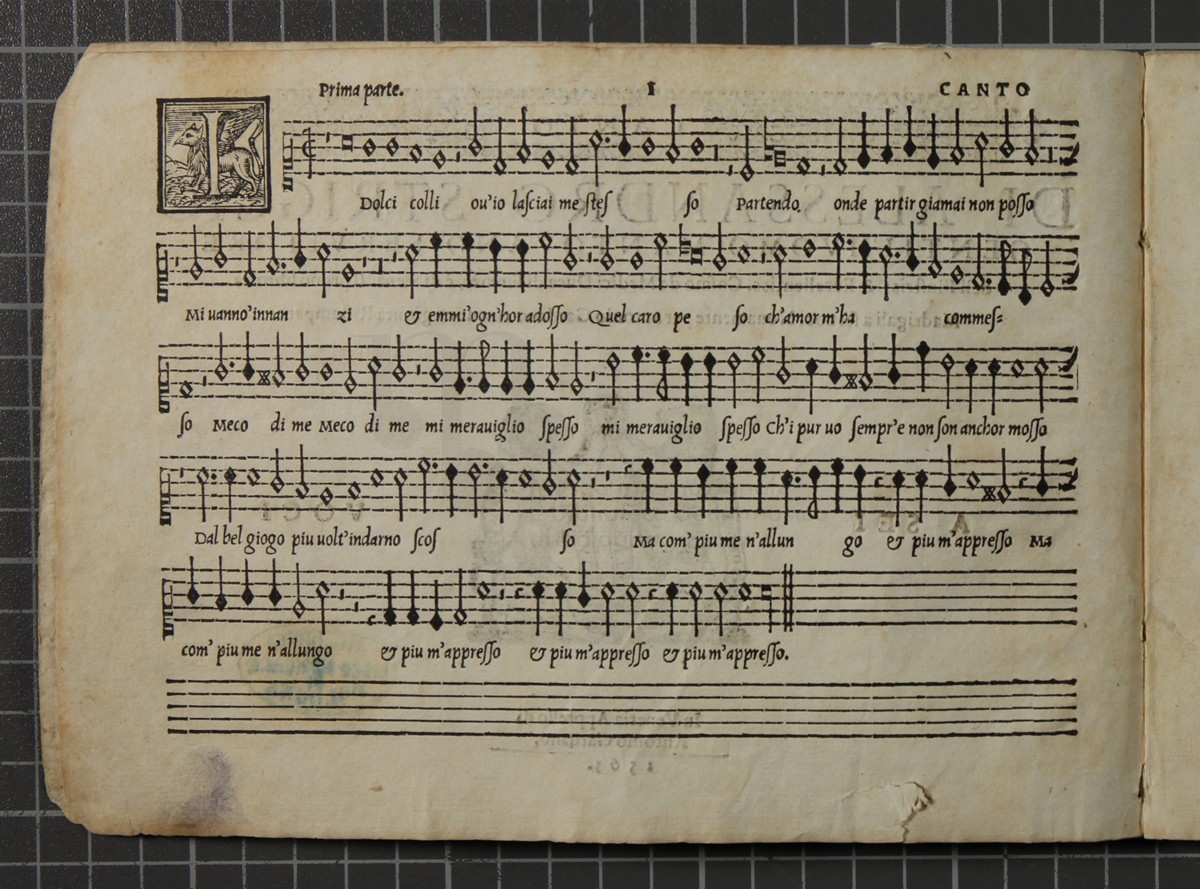 Prima parte. I CANTO
I Dolci colli ou'io lasciai me stes so Partendo, onde partir giamai non posso
Mi uanno'innan zi & emmi'ogn'hor adosso Quel caro pe so ch'amor m'ha commes=
so Meco di me Meco di me mi merauiglio spesso mi merauiglio spesso Ch'i pur uo sempr'e non son anchor mosso
Dal bel giogo piu uolt'indarno scos so Ma com' piu me n'allun go & piu m'appresso Ma
com' piu me n'allungo & piu m'appresso & piu m'appresso & piu m'appresso.